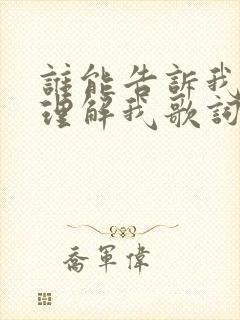 誰能告訴我
理解我歌詞
喬軍偉